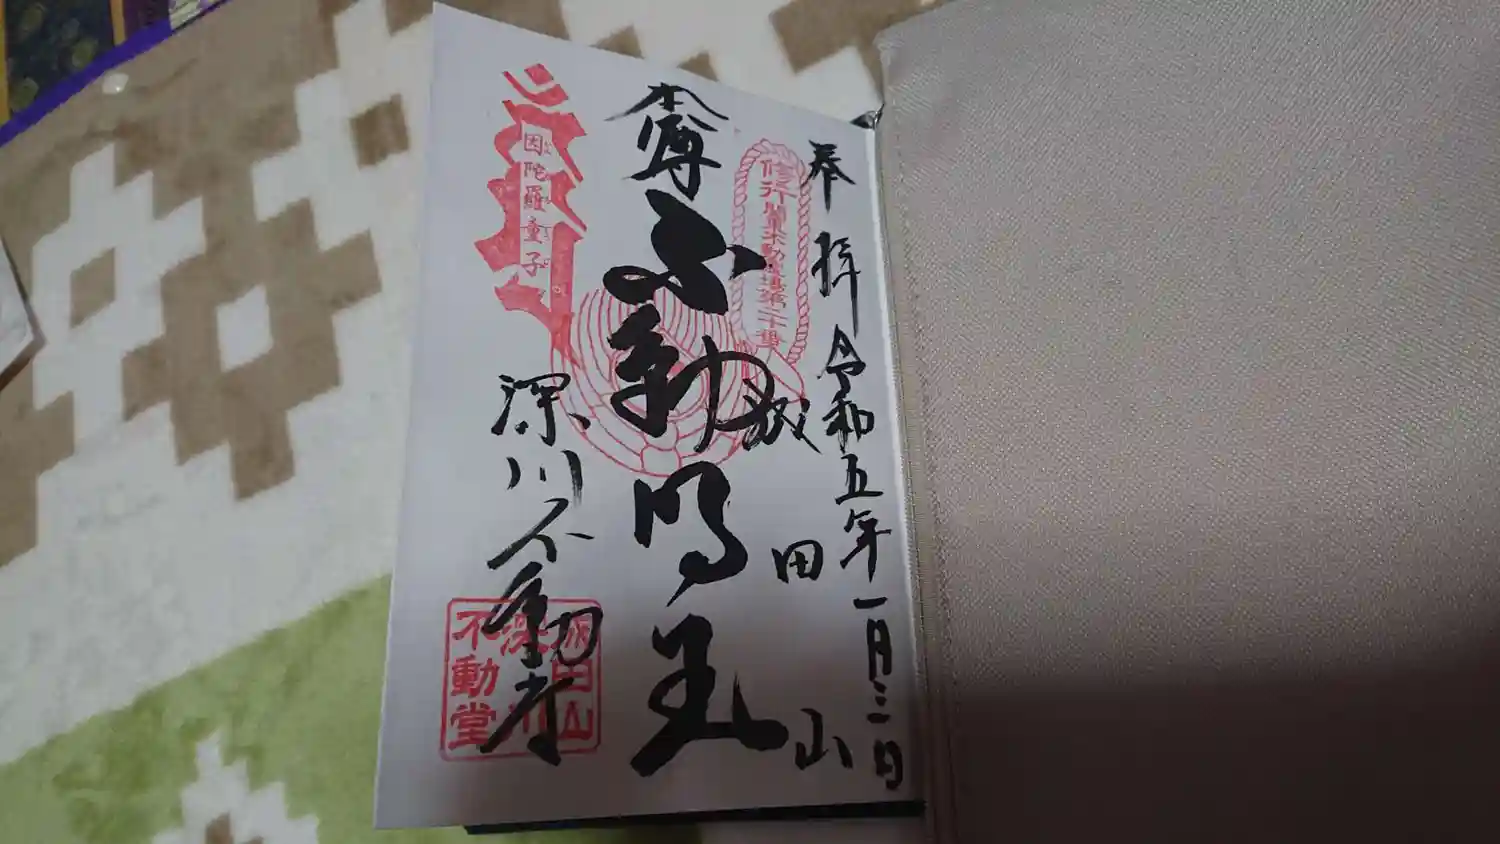 奉拝 令和五年一月三日
成田山
修行 関東不動霊場第二十番
本尊 不動明王
因陀羅童子
深川不動堂
成田山
深川
不動堂